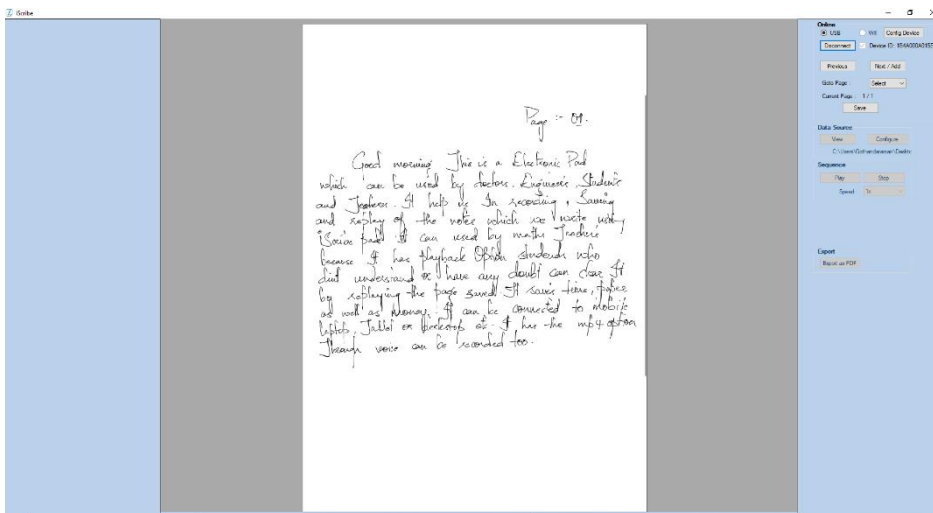 iScribe
Page :- 01.
Good morning This is a Electronic Pad
which can be used by doctors, Engineers Students
and Teachers. It help us In recording, Saving
and replay of the notes which we write using
iScribe pad. It can used by maths Teachers
because It has playback Option students who
didt understand or have any doubt can clear It
by replaying the page saved It saves time, paper
as well as money. It can be connected to mobile
laptop, Tablet or Desktop etc. I has the mp4 option
Through voice can be recorded too.
Online
USB Wifi Config Device
Disconnect Device ID:
Previous Next / Add
Goto Page : Select
Current Page : 1 / 1
Save
Data Source
View Configure
Sequence
Play Stop
Speed 1x
Export
Export as PDF